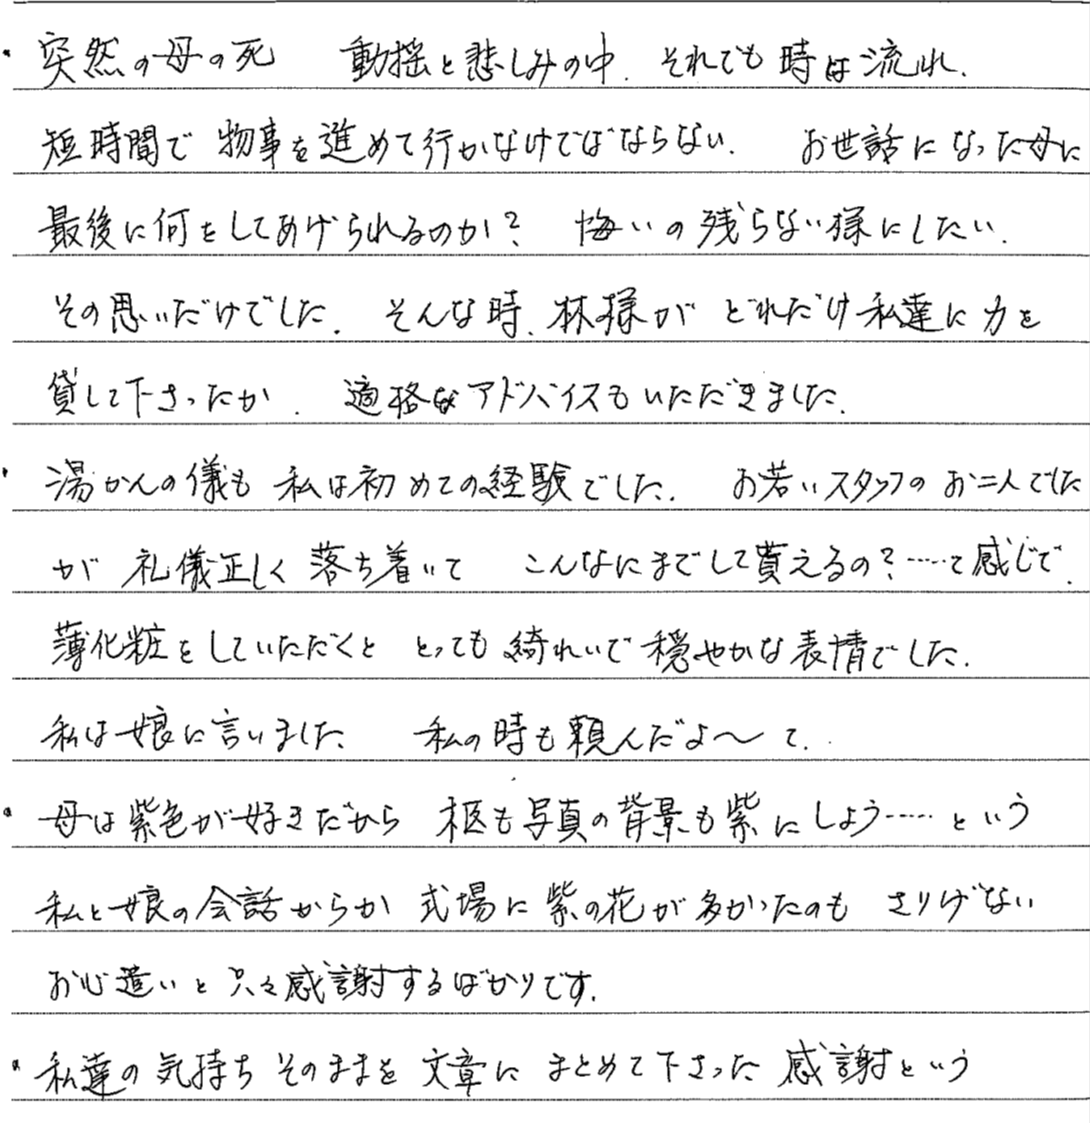 ・突然の母の死　動揺と悲しみの中、それでも時は流れ、
短時間で物事を進めて行かなけでばならない。　お世話になった母に
最後に何をしてあげられるのか？　悔いの残らない様にしたい。
その思いだけでした。　そんな時、林様がどれだけ私達に力を
貸して下さったか。　適格なアドバイスもいただきました。
・湯かんの儀も私は初めての経験でした。　お若いスタッフのお二人でした
が礼儀正しく落ち着いて　こんなにまでして貰えるの？……て感じで、
薄化粧をしていただくと　とっても綺れいで穏やかな表情でした。
私は娘に言いました、　私の時も頼んだよ〜て。
・母は紫色が好きだから　柩も写真の背景も紫にしよう……という
私と娘の会話からか　式場に紫の花が多かったのも　さりげない
お心遣いと只々感謝するばかりです。
・私達の気持ちそのままを文章にまとめて下さった感謝という